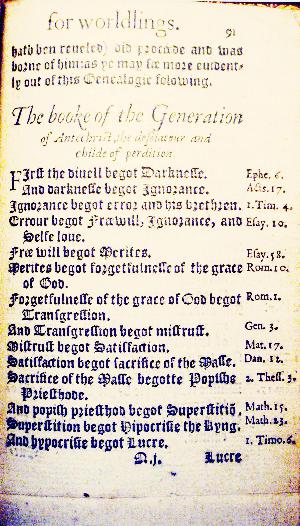 for worldlings.
91
hath ben reueled) did procede and was
borne of him: as ye may sæ more euident-
ly out of this Genealogie folowing.
The booke of the Generation
of Antechrist, the desceiuour and
childe of perdition
FIrst the diuell begot Darknesse. Ephe. 6.
And darknesse begot Ignorance. Actes. 17.
Ignorance begot error and his brethren. 1. Tim. 4.
Errour begot Fræ will, Ignorance, and Esay. 10.
Selfe loue.
Fræ will begot Merites. Esay. 58.
Merites begot forgetfulnesse of the grace Rom. 10.
of God.
Forgetfulnesse of the grace of God begot Rom. 1.
Transgression.
And Transgression begot mistrust. Gen. 3.
Mistrust begot Satisfaction. Mat. 17.
Satisfaction begot sacrifice of the Masse. Dan. 12.
Sacrifice of the Masse begotte Popishe 2. Thess. 3.
Priesthode.
And popish priesthod begot Superstitiō. Math. 15.
Superstition begot Hipocrisie the kyng. Math. 23.
And hypocrisie begot Lucre. 1. Timo. 6.
N.j. Lucre